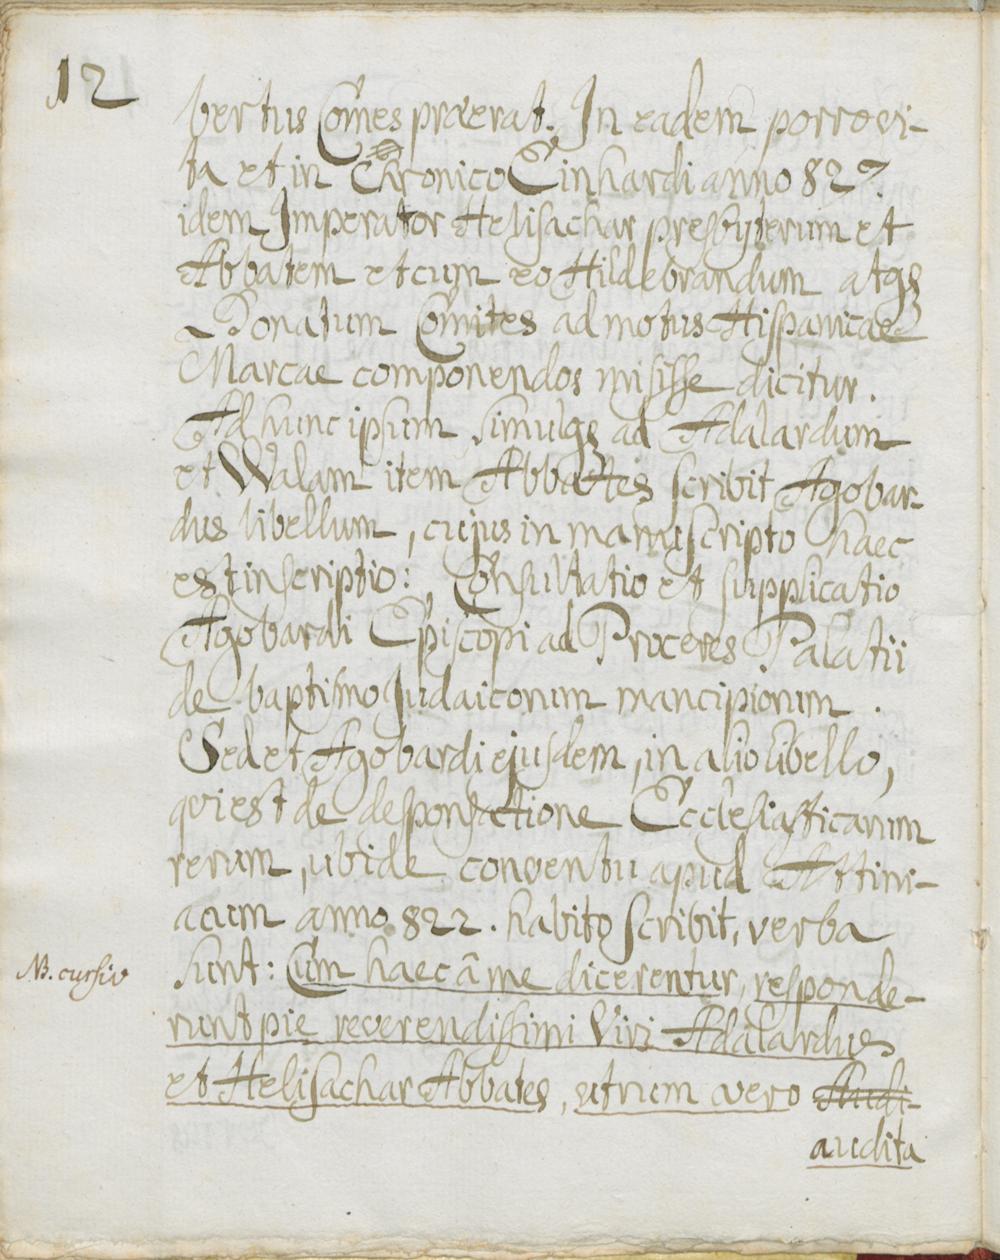 12
bertus Comes praeerat. In eadem porro vi-
ta et in Chronico Einhardi anno 827
idem Imperator Helisachar presbyterum et
Abbatem et cum eo Hildebrandum atq3
Donatum Comites ad motus Hispanicae
Marcae componendos misisse dicitur.
Ad hunc ipsum simulq3 ad Adalardum
et Walam item Abbates scribit Agobar-
dus libellum, cujus in manuscripto haec
est inscriptio: Consultatio et supplicatio
Agobardi Episcopi ad Proceres Palatii
de baptismo Judaicorum mancipiorum.
Sed et Agobardi ejusdem, in alio libello,
qui est de desponsatione Ecclesiasticarum
rerum, ubi de conventu apud Attini-
acum anno 822. habito scribit, verba
NB. cursiv
sunt: Cum haec â me dicerentur, responde-
runt pie reverendissimi Viri Adalardus
et Helisachar Abbates, utrum vero Audi-
audita